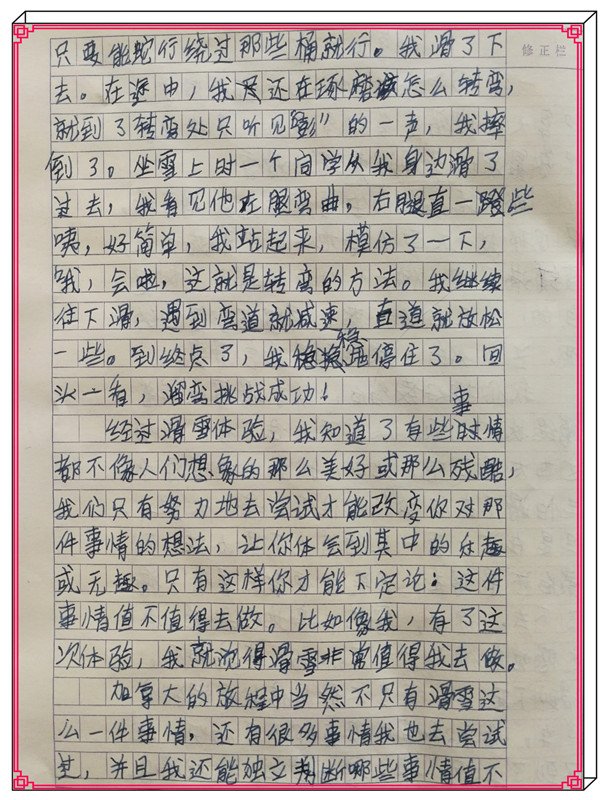 修正栏
只要能蛇行绕过那些桶就行。我滑了下
去。在途中，我还在琢磨该怎么转弯，
就到了转弯处只听见“彭”的一声，我摔
倒了。坐雪上时一个同学从我身边滑了
过去，我看见他左腿弯曲，右腿直一蹬些
咦，好简单，我站起来，模仿了一下，
哦，会啦，这就是转弯的方法。我继续
往下滑，遇到弯道就减速，直道就放松
一些。到终点了，我稳稳地停住了。回
头一看，溜弯挑战成功！
经过滑雪体验，我知道了有些事情
都不像人们想象的那么美好或那么残酷，
我们只有努力地去尝试才能改变你对那
件事情的想法，让你体会到其中的乐趣
或无趣。只有这样你才能下定论：这件
事情值不值得去做。比如像我，有了这
次体验，我就觉得滑雪非常值得我去做。
加拿大的旅程中当然不只有滑雪这
么一件事情，还有很多事情我也去尝试
过，并且我还能独立判断哪些事情值不